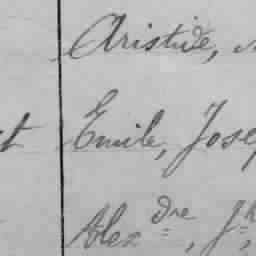 Aristide,
Emile, Josep
Alex dre, Jh,